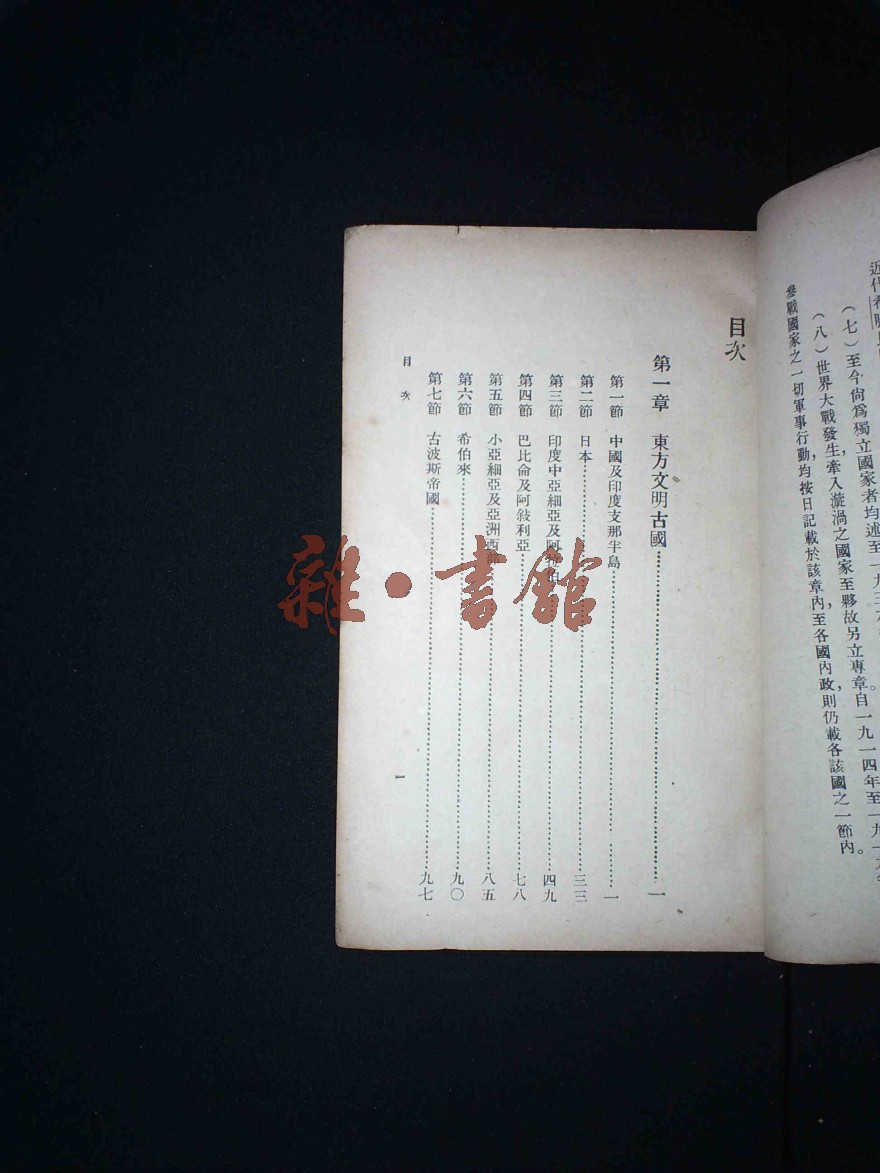 近代希臘
（七）至今尙爲獨立國家者均述至一九三六年。
（八）世界大戰發生，牽入漩渦之國家至夥故另立專章自一九一四年至一九一九年
參戰國家之一切軍事行動，均按日記載於該章內，至各國內政，則仍載各該國之一節內。
目次
第一章　東方文明古國……一
第一節　中國及印度支那半島……一
第二節　日本……三三
第三節　印度中亞細亞及阿拉伯……四九
第四節　巴比侖及阿敍利亞……七八
第五節　小亞細亞及亞洲西部……八五
第六節　希伯來……九〇
第七節　古波斯帝國……九七
目次
一
雜・書館